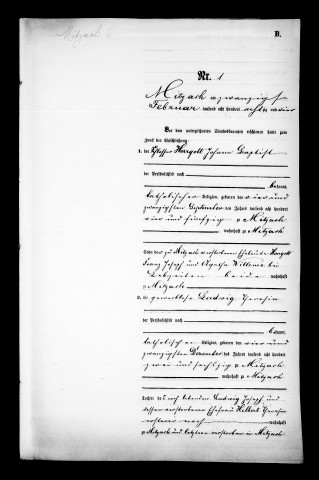 Mitzach
B.
Nr. 1
Mitzach am zwanzigsten
Februar tausend acht hundert achtzig und vier
Vor dem unterzeichneten Standesbeamten erschienen heute zum
Zweck der Eheschließung:
1. der Schlosser Herrgott Johann Baptist
der Persönlichkeit nach
bekannt,
katholischer Religion, geboren den vier und
zwanzigsten September des Jahres tausend acht hundert
vier und fünfzig zu Mitzach
, wohnhaft zu Mitzach
Sohn des zu Mitzach verstorbenen Eheleute Herrgott
Franz Joseph und Agatha
Lebzeiten beide wohnhaft
zu Mitzach
2. die gewerblose Ludwig Theresia
der Persönlichkeit nach
bekannt,
katholischer Religion, geboren den vier und
zwanzigsten Dezember des Jahres tausend acht hundert
zwei und sechszig zu Mitzach
, wohnhaft zu Mitzach
Tochter des noch lebenden Ludwig Joseph und
dessen verstorbenen Ehefrau Theresia
ersterer noch wohnhaft
zu Mitzach und letztere verstorben in Mitzach